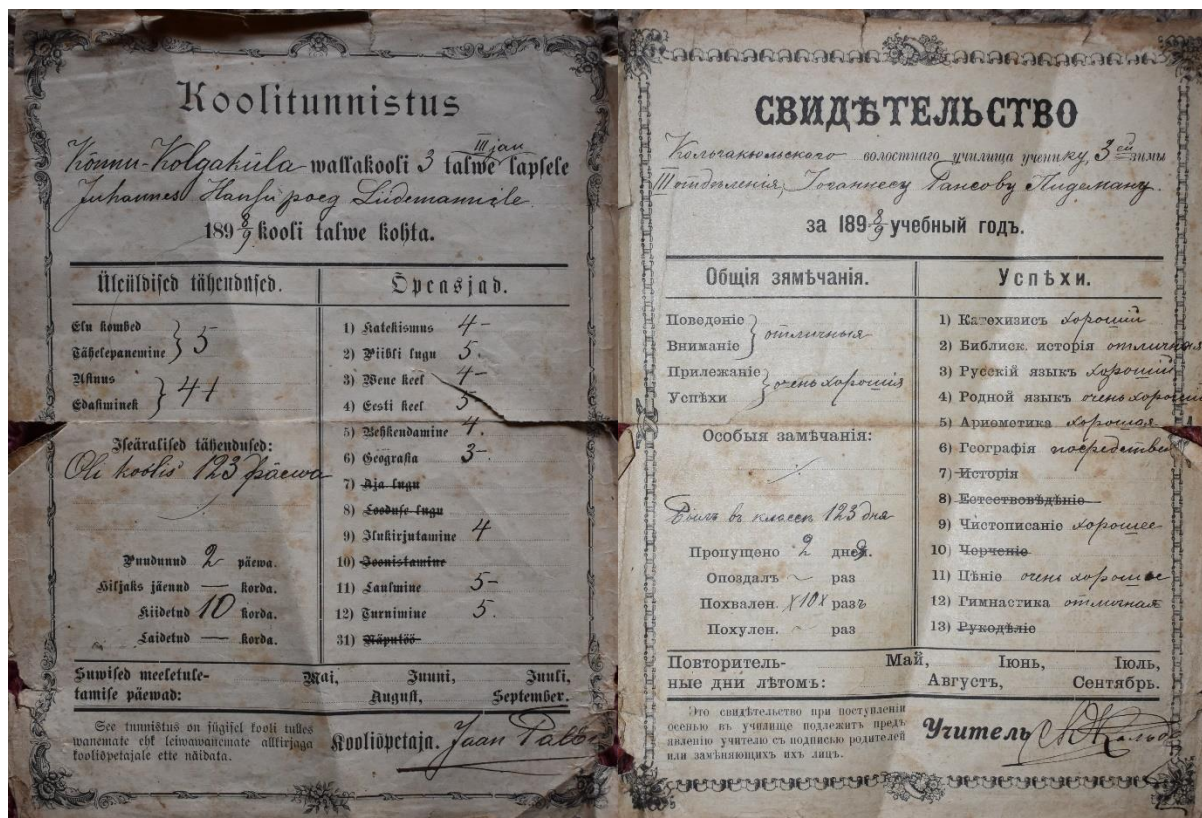 Koolitunnistus
Könnu-Kolgaküla wallakooli 3 talwe III jan lapsele
Juhannes Hansu poeg Lüdemannile
189 8/9 kooli talwe kohta.
Üleüldised tähendused.
Elu kombed
Tähelepanemine } 5
Usinus
Edasiminek } 4+
Iseäralised tähendused:
Oli koolis 123 päewa
Puudunud 2 päewa.
Hiljaks jäenud — korda.
Kiidetud 10 korda.
Laidetud — korda.
Õpeasjad.
1) Katekismus 4-
2) Piibli lugu 5.
3) Wene keel 4-
4) Eesti keel 5
5) Rehkendamine 4.
6) Geografia 3-
7) Aja lugu
8) Looduse lugu
9) Ilukirjutamine 4
10) Joonistamine
11) Laulmine 5-
12) Turnimine 5.
31) Näputöö
Suwised meeletule-
tamise päewad:
Mai, Juuni, Juuli,
August, September.
See tunnistus on sügisel kooli tulles
wanemate ehk leiwawanemate allkirjaga
kooliõpetajale ette näidata.
Kooliõpetaja. Jaan
СВИДѢТЕЛЬСТВО
Кольгакюльскаго волостнаго училища ученику, 3ей зимы
III отдѣленія, Іоганнесу Гансову Лидеману.
за 189 8/9 учебный годъ.
Общія зямѣчанія.
Поведѳніе
Вниманіе } отличныя
Прилежаніе
Успѣхи } очень хорошія
Особыя замѣчанія:
Былъ въ классѣ 123 дня
Пропущено 2 дней.
Опоздалъ ~ раз
Похвален. X10X разъ
Похулен. ~ раз
Успѣхи.
1) Катехизисъ хорошій
2) Библиск. исторія отличная
3) Русскій языкъ хорошій
4) Родной языкъ очень хорошій
5) Ариѳметика хорошая
6) Географія посредствен
7) Исторія
8) Естествовѣдѣніе
9) Чистописаніе хорошее
10) Черченіе
11) Пѣніе очень хорошее
12) Гимнастика отличная
13) Рукодѣліе
Повторитель-
ные дни лѣтомъ:
Май, Іюнь, Іюль,
Августъ, Сентябрь.
Это свидѣтельство при поступленіи
осенью въ училище подлежитъ предъ
явленію учителю съ подписью родителей
или замѣняющихъ ихъ лицъ.
Учитель